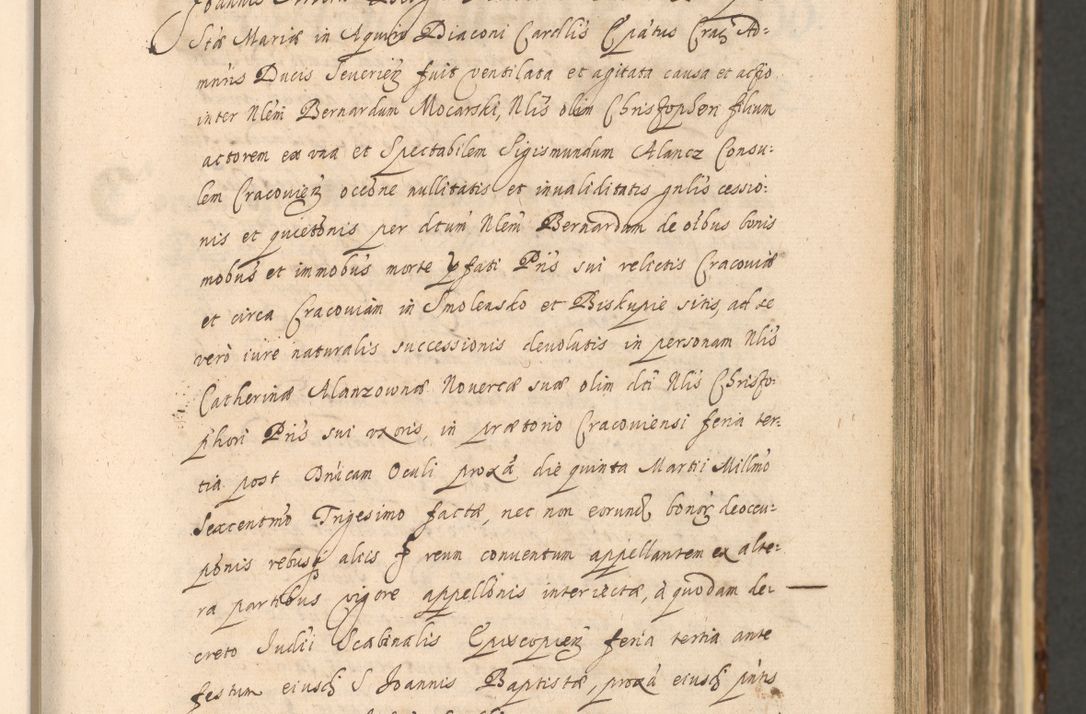 Stæ Mariæ in Aquiro Diaconi Car͠llis Ep̃atus Crac̃ Ad:
mn̄ris Ducis Severień fuit ventilata et agitata causa et actio
inter Nlem̄ Bernardum Mocarski, Nlis̄ olim Christopheri filium
actorem ex vna et Spectabilem Sigismundum Alancz Consu:
lem Cracovień occōne nullitatis et invaliditatis gnlis̄ cessio:
nis et quietōnis per dctum̄ Nlem̄ Bernardum de oībus bonis
mobūs et immobūs morte p̱fati Pris̄ sui relictis Cracoviæ
et circa Cracoviam in Smoleńsko et Biskupie sitis, ad se
verò iure naturalis successionis devolutis in personam Nlis̄
Catherinæ Alanzownæ Novercæ suæ olim dti̅ Nlis̄ Christo:
phori Pris̄ sui vxoris, in prætorio Cracoviensi feria ter:
tia post Dnīcam Oculi proxā die quinta Martii Millm̄o
Sexcentm̄o Trigesimo factæ, nec non eorund̃ bonor̃ deoccu:
pōnis rebusq̨ aliis ꝑ reum conventum appellantem ex alte:
ra partibus vigore appellōnis interiectæ, à quodam de:
creto Judīi Scabinalis Episcopień feria tertia ante
festum eiusd̃ S Joannis Baptistæ, proxā eiusd̃ pn̄tis